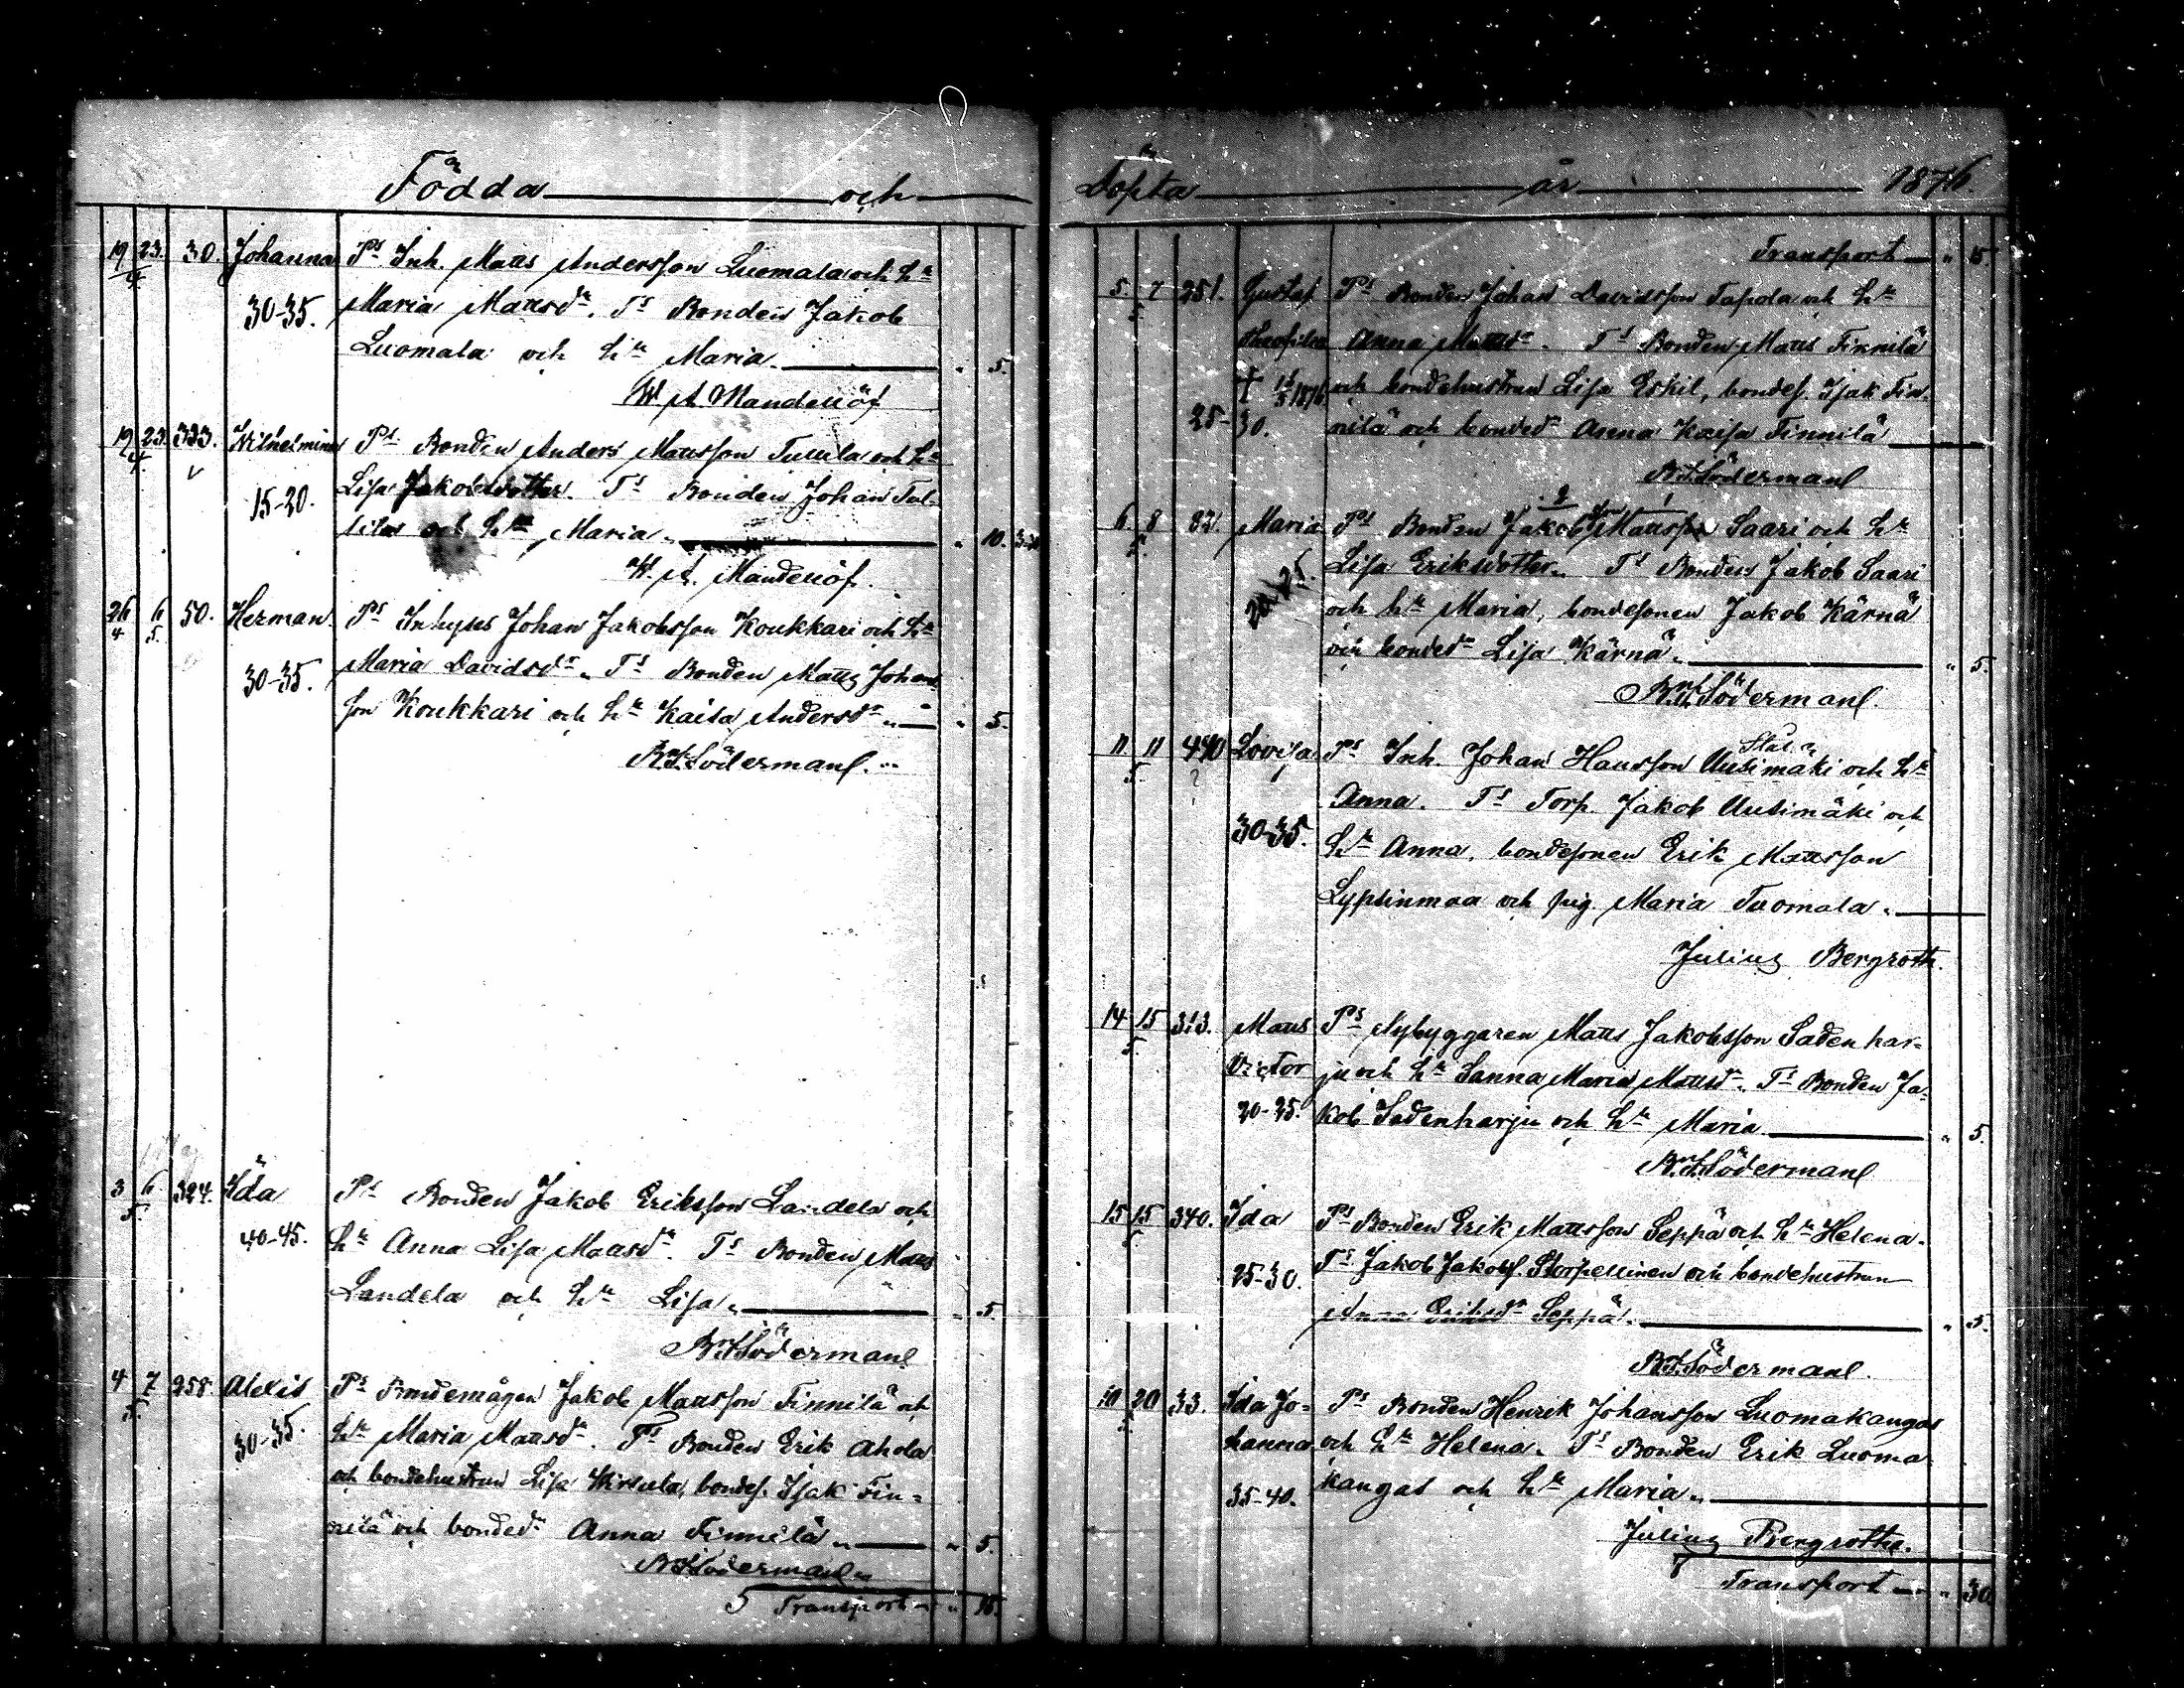 Födda och
19 23. 30. Johanna Ps Inh. Matts Andersson Luomala och h~
4.
30-35. Maria Mattsdr. Ts Bonden Jakob
Luomala och hu Maria. " 5.
W. A. Mandellöf
19 23. 333. Wilhelmina Ps Bonden Anders Mattsson Tuula och hu
4.
15-20. Lisa Jakobsdotter. Ts Bonden Johan
och hu Maria. " 10.
W. A. Mandellöf.
26 6 50. Herman. Ps Inhyses Johan Jakobsson Koukkari och hu
4 5.
30-35. Maria Davidsdr. Ts Bonden Matts Johans
son Koukkari och hu Kaisa Andersdr " 5.
Södermanl.
3 6 324. Ida Ps Bonden Jakob Eriksson Landela och
5.
40-45. hu Anna Lisa Mattsdr. Ts Bonden Matts
Landela och hu Lisa. " 5.
Södermanl
4 7 258. Alexis Ps Bondemågen Jakob Mattsson Finnilä och
5.
30-35. hu Maria Mattsdr. Ts Bonden Erik Ahola
och bondehustrun Lisa, bondes. Isak Fin-
nilä och bondedr Anna Finnilä. " 5.
Södermanl
Transport " 15.
Döpta år 1876.
Transport " 15.
5. 7 251. Gustaf Ps Bonden Johan Davidsson Tapola och hu
5
Theofilus Anna Mattsdr. Ts Bonden Matts Finnilä
† 1876 och bondehustrun Lisa Eskil, bondes. Isak Fin-
25-30. nilä och bondedr Anna Kaisa Finnilä
Södermanl
6 8 Maria Ps Bonden Jakob Mattsson Saari och hu
5.
20-25. Lisa Eriksdotter. Ts Bonden Jakob Saari
och hu Maria, bondesonen Jakob Kärnä
och bondedr Lisa Kärnä. " 5.
Södermanl.
11 11 440 Lovisa Ps Inh. Johan Hansson Uusimäki och hu
5. ?
Anna. Ts Torp. Jakob Uusimäki och
30-35. hu Anna, bondesonen Erik Mattsson
Lyptinmaa och pig. Maria Tuomala.
Julius Bergroth.
14 15 313. Matts Ps Nybyggaren Matts Jakobsson Sadenhar-
5.
Victor ju och hu Sanna Maria Mattsdr. Ts Bonden Ja-
20-25. kob Sadenharju och hu Maria " 5.
Södermanl
15 15 340. Ida Ps Bonden Erik Mattsson Seppä och hu Helena.
5.
25-30. Ts Jakob Jakobs. Storpellinen och bondehustrun
Anna Eriksdr Seppä. " 5.
Södermanl.
10 20 33. Ida Jo- Ps Bonden Henrik Johansson Luomakangas
5.
hanna och hu Helena. Ts Bonden Erik Luoma-
35-40. kangas och hu Maria.
Julius Bergroth.
Transport " 30